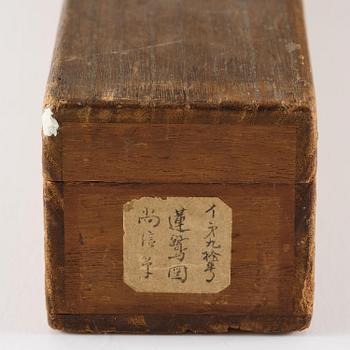 イ第九拾号
蓮鷺図
尚信筆